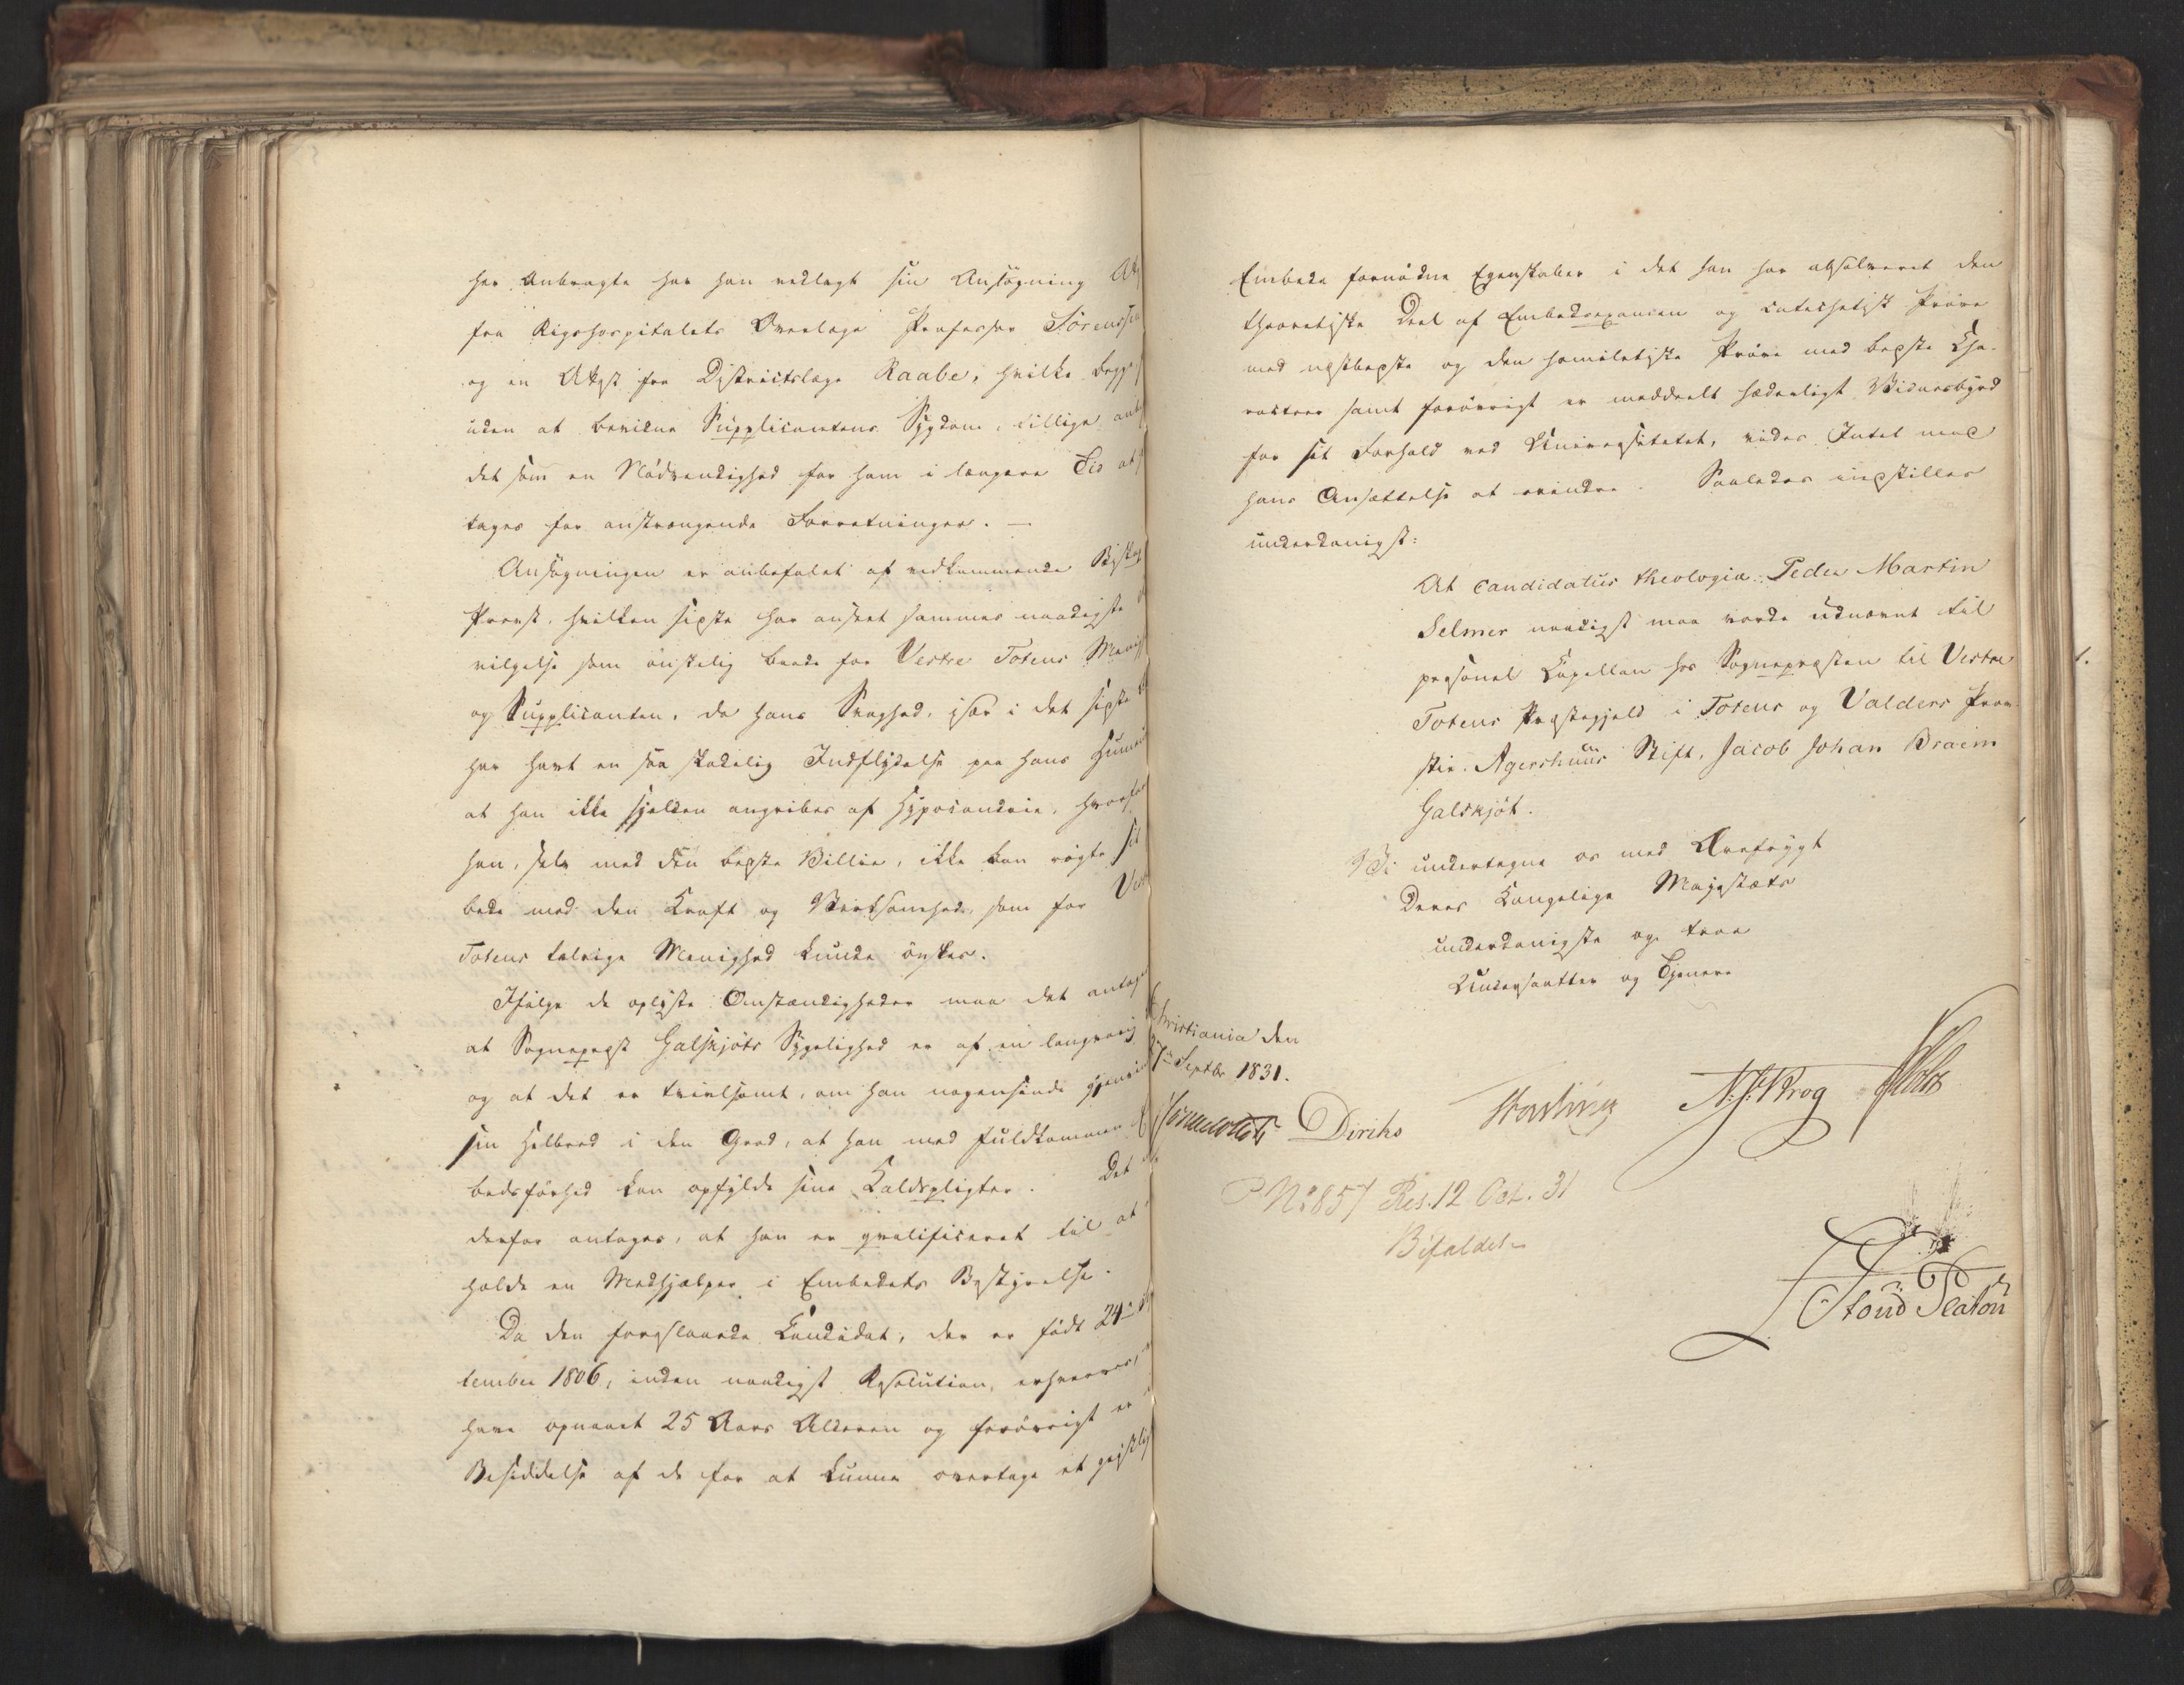 her Anbragte har han vedlagt sin Ansøgning
fra Rigshospitalets Overlæge Professor Sörenssen
og en Attest fra Districtslæge Raabe, hvilke begge
uden at bevidne Supplicantens Sygdom, tillige
det som en Nödvendighed for ham i længere Tid at
tages for anstrængende Forretninger. —
Ansögningen er anbefalet af vedkommende Biskop
Provst, hvilken sidste har anseet sammes naadigste
vilgelse som önskelig baade for Vestre Totens Menig
og Supplicanten, da hans Svaghed, især i det sidste
har havt en saa skadelig Indflydelse paa hans Humeur
at han ikke sjelden angribes af Hypocondrie, hvorfor
han, selv med den bedste Villie, ikke kan rögte sit
bede med den Kraft og Virksomhed, som for Vestre
Totens talrige Menighed kunde önskes.
Ifölge de oplyste Omstændigheder maa det antages
at Sognepræst Galskjöts Sygelighed er af en langvarig
og at det er tvivlsomt, om han nogensinde gjenvinder
sin Helbred i den Grad, at han med fuldkommen
bedsförhed kan opfylde sine Kaldspligter. Det
derfor antages, at han er qvalificeret til at
holde en Medhjælper i Embedets Bestyrelse.
Da den foreslaaede Candidat, der er född 24de
tember 1806, inden naadigst Resolution, erhverves,
have opnaaet 25 Aars Alderen og forövrigt er
Besiddelse af de for at kunne overtage et geistligt
Embede fornödne Egenskaber i det han har absolveret den
theoretiske Deel af Embedsexamen og catechetisk Pröve
med næstbedste og den homiletiske Pröve med bedste Cha-
racteer samt forövrigt er meddeelt hæderligt Vidnesbyrd
for sit Forhold ved Universitetet, vides Intet mod
hans Ansættelse at erindre. Saaledes indstilles
underdanigst:
At candidatus theologiæ Peder Martin
Selmer naadigst maa vorde udnævnt til
personel Capellan hos Sognepræsten til Vestre
Totens Præstegjeld i Totens og Valders Prov-
stie. Agershuus Stift, Jacob Johan Braëm
Galskjöt.
Vi undertegne os med Ærefrygt
Deres Kongelige Majestæts
underdanigste og troe
Undersaatter og Tjenere
Christiania den
17de Septbr 1831.
Diriks
N. J. Krog
No 857 Res. 12 Oct. 31
Bifaldet
Stoud Platou